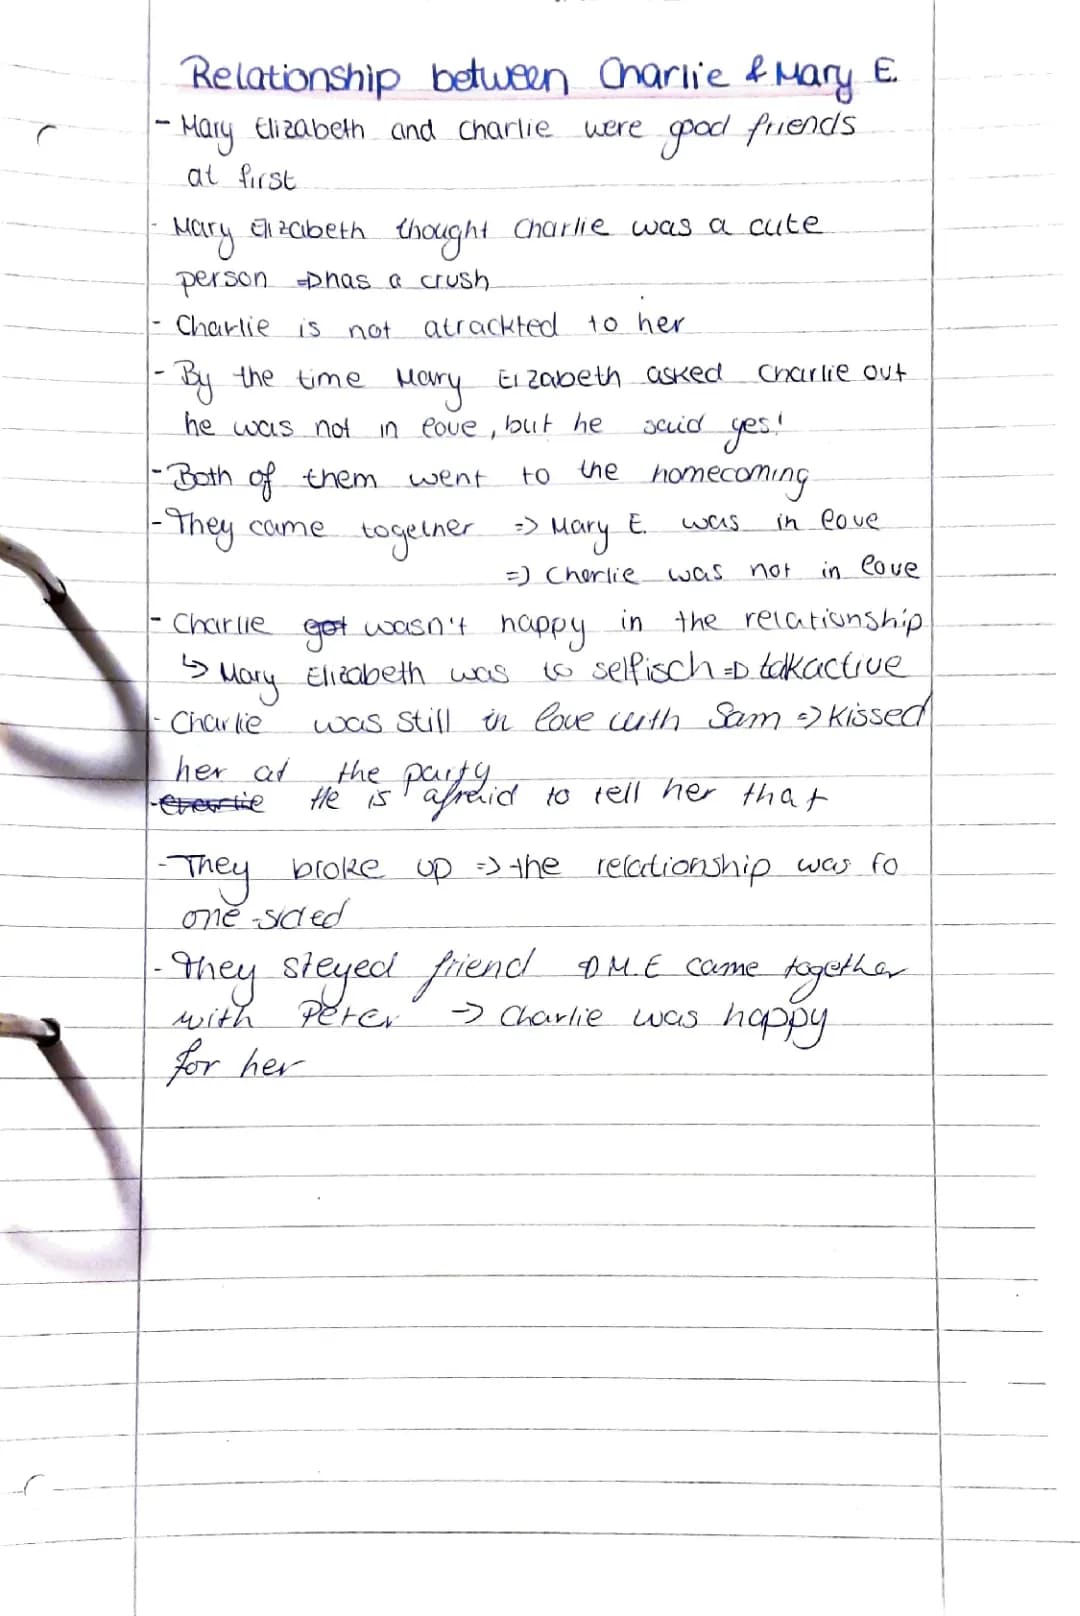 Relationship between Charlie & Mary E.
- Mary Elizabeth and Charlie were good friends
at first
- Mary Elizabeth thought Charlie was a cute
person => has a crush
- Charlie is not atrackted to her
- By the time Mary Elizabeth asked Charlie out
he was not in love, but he said yes!
- Both of them went to the homecoming
- They came together => Mary E. was in love
=> Charlie was not in love
- Charlie got wasn't happy in the relationship
↳ Mary Elizabeth was to selfisch => talkactive
- Charlie was still in love with Sam => kissed
her at the party
- Charlie He is afraid to tell her that
- They broke up => the relationship was to
one-sided
- They steyed friend => M.E came together
with Peter -> Charlie was happy
for her